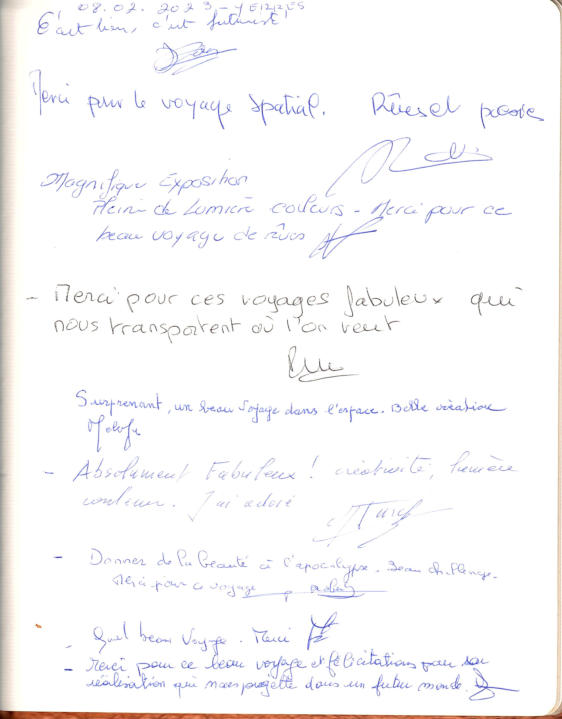 08.02.2023 - YERRES
C'est bien, c'est futuriste!
Merci pour le voyage spatial. Rêves et
Magnifique Exposition
Pleine de Lumière couleurs - Merci pour ce
beau voyage de rêves
- Merci pour ces voyages fabuleux qui
nous transportent où l'on veut
Surprenant, un beau voyage dans l'espace. Belle création
- Absolument Fabuleux! créativité, lumière
couleur. J'ai adoré
- Donner de la beauté à l'apocalypse. Beau challenge.
Merci pour ce voyage
- Quel beau Voyage. Merci
- Merci pour ce beau voyage et félicitations pour sa
réalisation qui nous projette dans un futur monde.